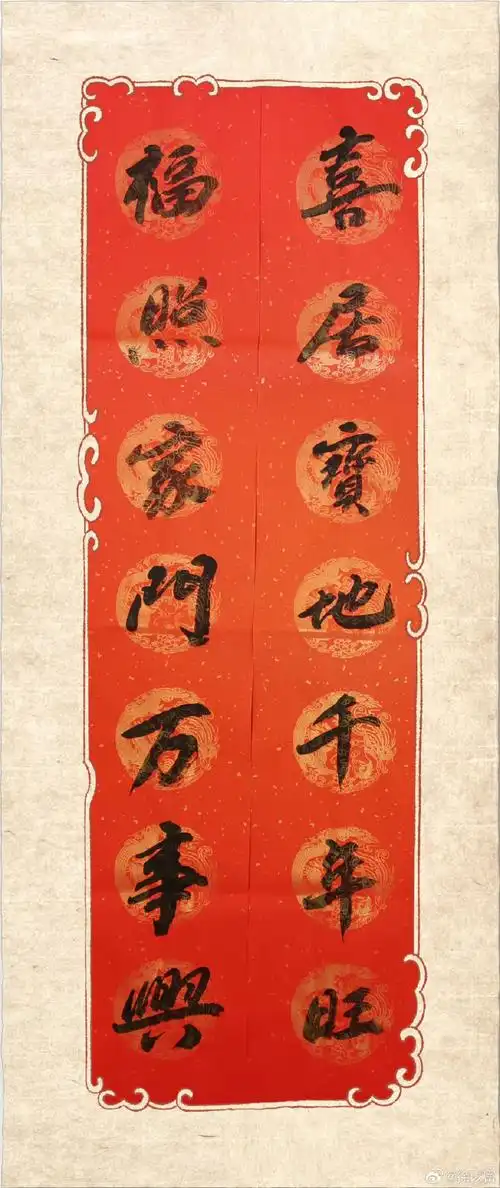 喜居寶地千年旺
福照家門万事興